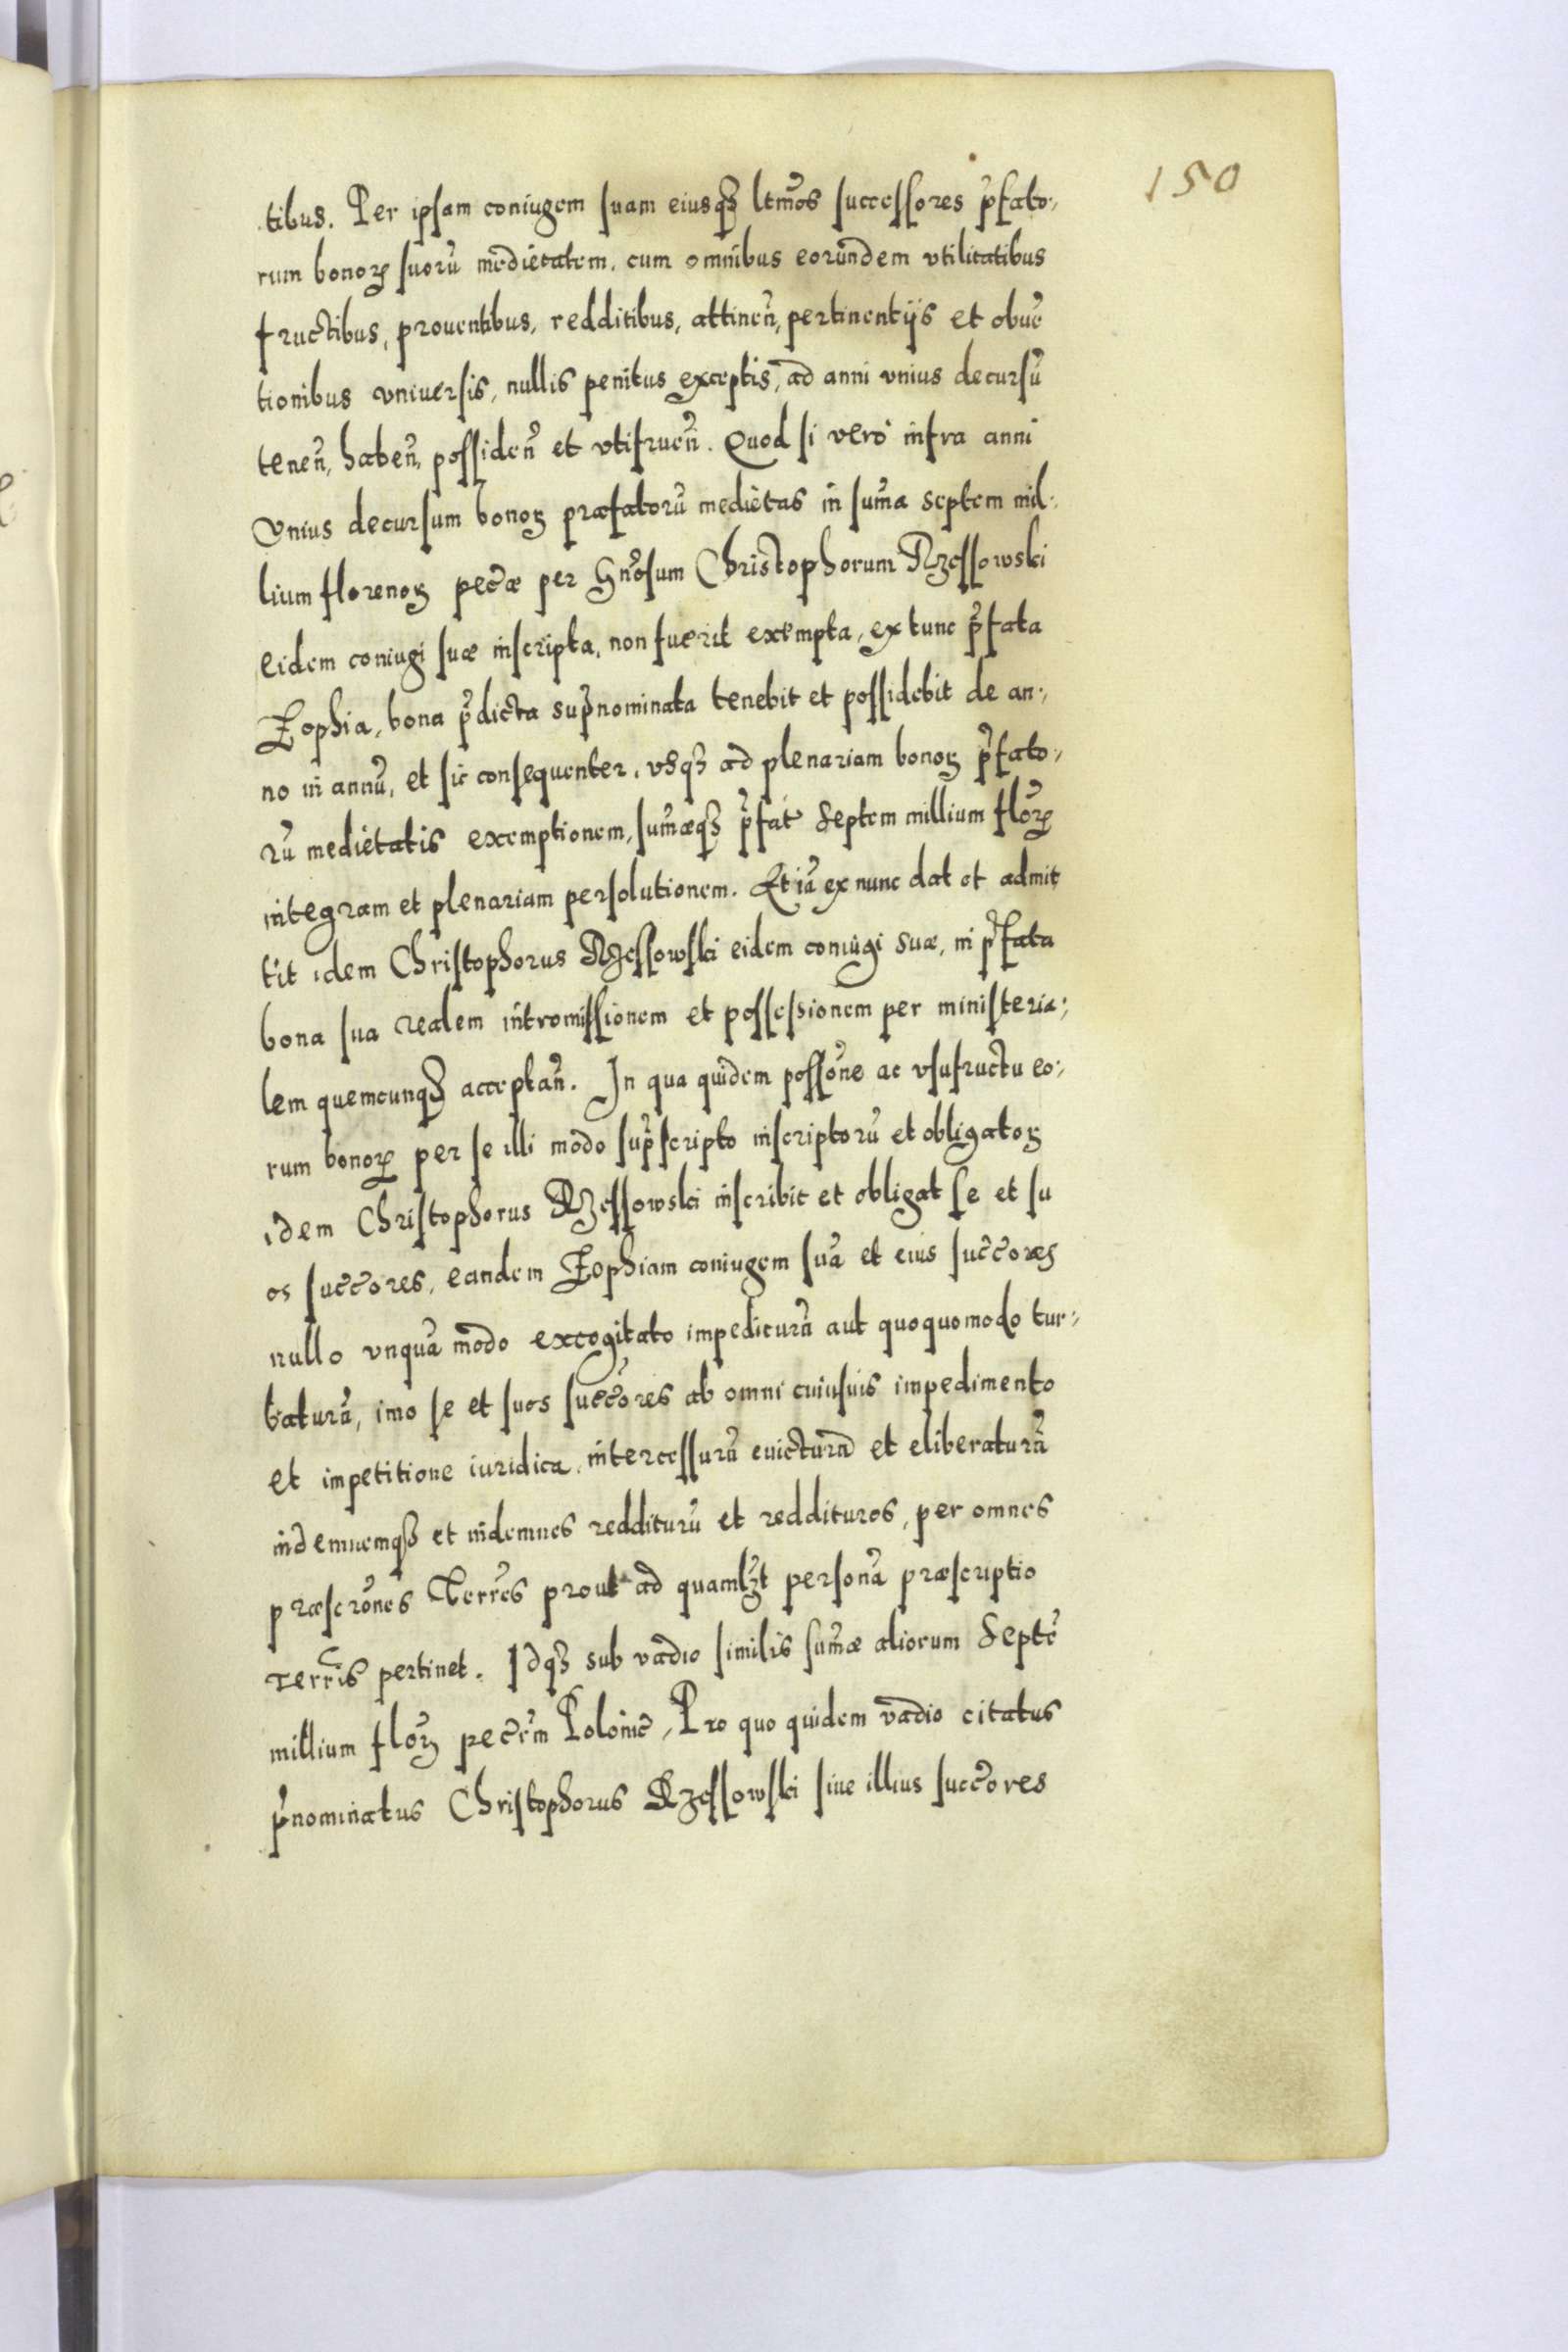 150
tibus. Per ipsam coniugem suam eiusqꝫ ltm̃os successores p̃fato,
rum bonoꝝ suorũ medietatem, cum omnibus eorundem vtilitatibus
fructibus, prouentibus, redditibus, attineñ, pertinentijs et obuẽ
tionibus vniuersis, nullis penitus exceptis, ad anni vnius decursũ
teneñ, habeñ, possideñ et vtifrueñ. Quod si vero infra anni
vnius decursum bonoꝝ præfatorũ medietas in sum̃a septem mil,
lium florenoꝝ pecũæ per Gñosum Christophorum Rzessowski
eidem coniugi suæ inscripta, non fuerit exempta, ex tunc p̃fata
Zophia, bona p̃dicta sup̃nominata tenebit et possidebit de an,
no in annũ, et sic consequenter, vsqꝫ ad plenariam bonoꝝ p̃fato,
rũ medietatis exemptionem, sum̃æqꝫ p̃fat̃ septem millium flõrꝝ
integram et plenariam persolutionem. Etiã ex nunc dat et admit
tit idem Christophorus Rzessowski eidem coniugi suæ, in p̃fata
bona sua realem intromissionem et possessionem per ministeria,
lem quemcunqꝫ acceptañ. In qua quidem possõne ac vsufructu eo,
rum bonoꝝ per se illi modo sup̃scripto inscriptorũ et obligatoꝝ
idem Christophorus Rzessowski inscribit et obligat se et su
os succ̃ores, eandem Zophiam coniugem suã et eius succ̃ores
nullo vnquã modo excogitato impediturũ aut quoquomodo tur,
baturũ, imo se et suos succ̃ores ab omni cuiusuis impedimento
et impetitione iuridica intercessurũ euicturũ et eliberaturũ
indemnemqꝫ et indemnes redditurũ et reddituros, per omnes
præscrõnes Terrẽs prout ad quamlꝫt personã præscriptio
Terrĩs pertinet. Idqꝫ sub vadio similis sum̃æ aliorum septẽ
millium flõrꝝ pecũm Polonic̃, Pro quo quidem vadio citatus
p̃nominatus Christophorus Rzessowski siue illius succ̃ores